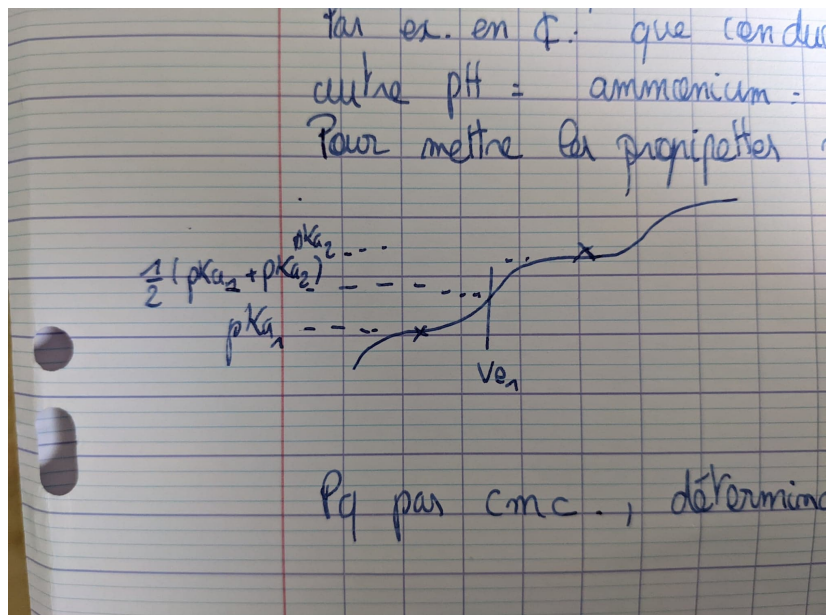 Par ex. en ₵. que condu
autre pH = ammonium -
Pour mettre les propipettes
pKa2
1/2 (pKa1 + pKa2)
pKa1
Ve1
Pq par cmc., détermina